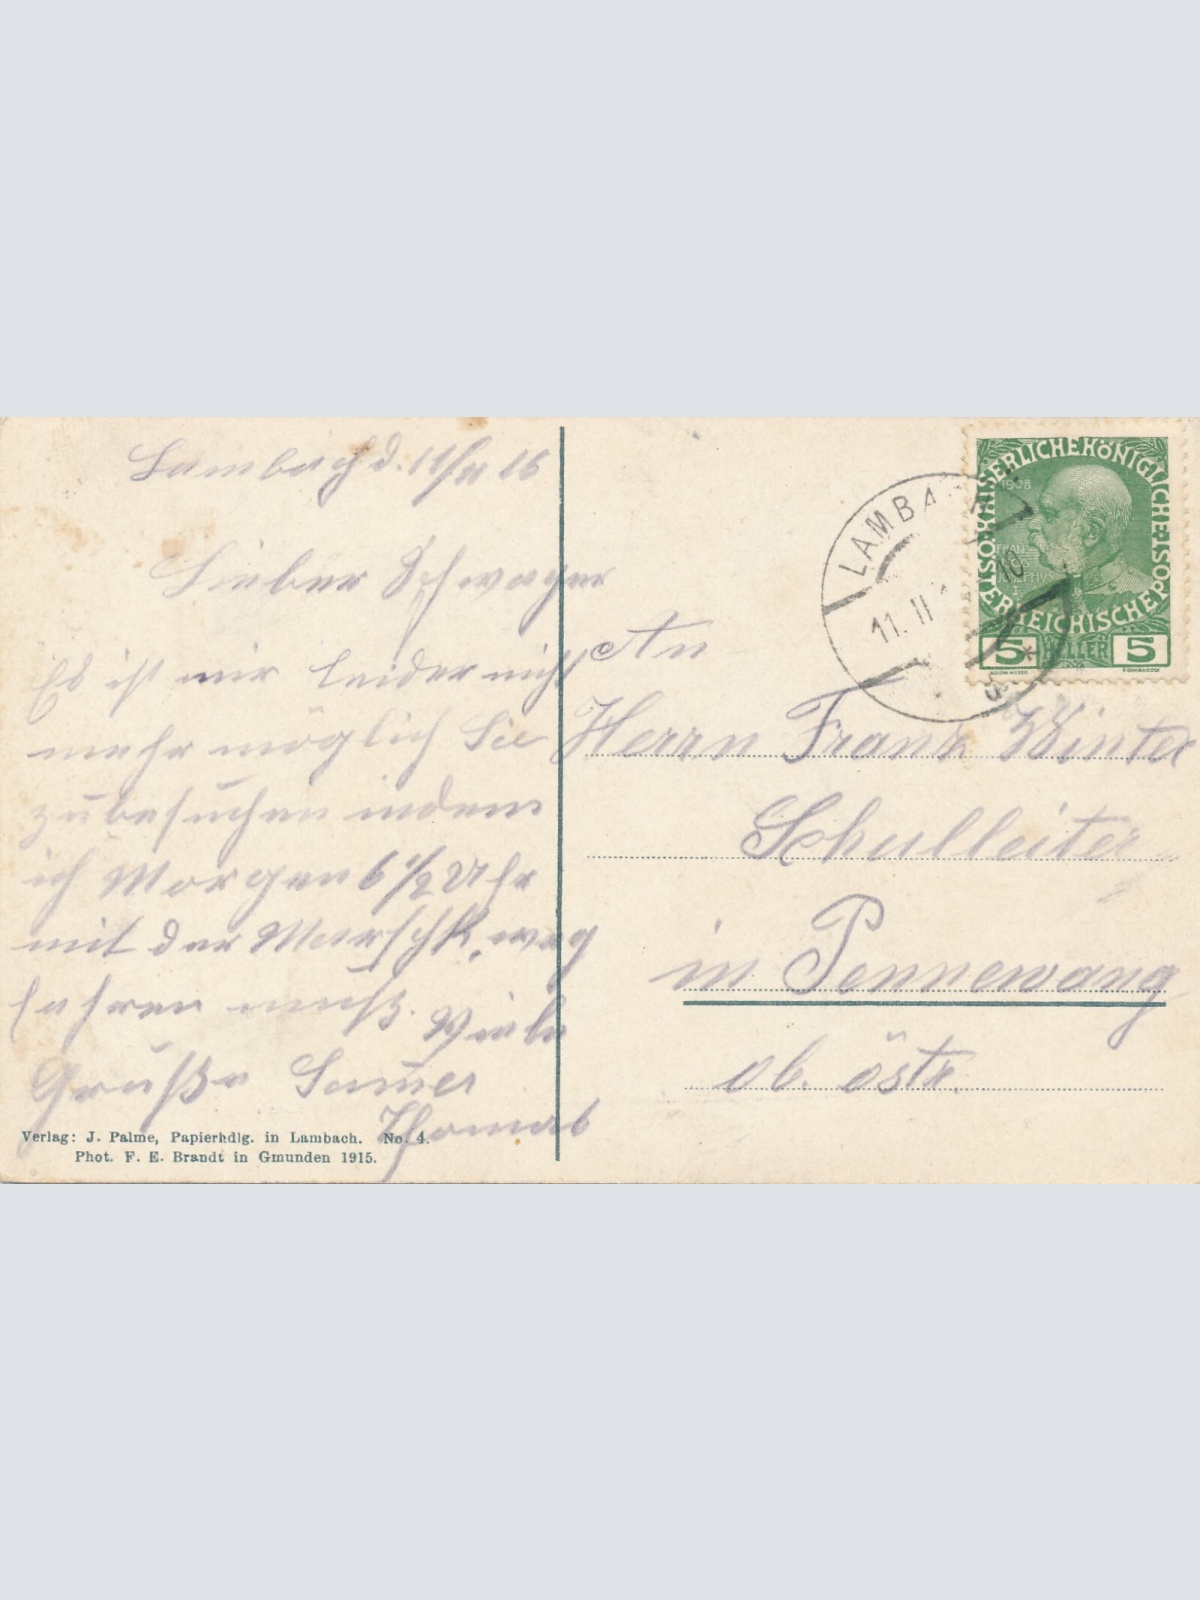 Lambach d. 11/II 16
Lieber Schwager
Es ist mir leider nicht
mehr möglich Sie
zu besuchen indem
ich Morgen 6 1/2 Uhr
mit der Marschk. weg
fahren muß. Viele
Grüße
Thomas
Verlag: J. Palme, Papierhdlg. in Lambach. No. 4.
Phot. F. E. Brandt in Gmunden 1915.
LAMBA
11. II
10
KAISERLICHE KÖNIGLICHE
ÖSTERREICHISCHE POST
1908
5 HELLER 5
An
Herrn Franz Winter
Schulleiter
in Pennewang
ob. östr.